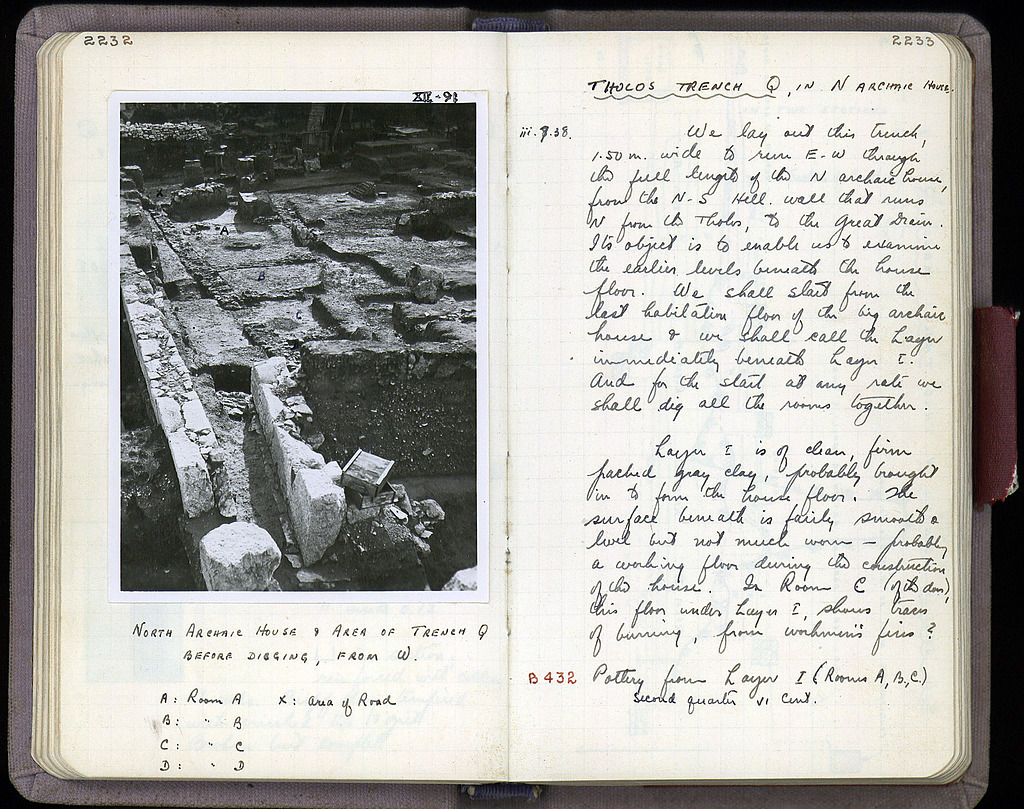 2232
XII-91
NORTH ARCHAIC HOUSE & AREA OF TRENCH Q
BEFORE DIGGING, FROM W.
A: Room A X: area of Road
B: " B
C: " C
D: " D
2233
THOLOS TRENCH Q, IN N ARCHAIC HOUSE.
We lay out this trench,
1.50 m. wide to run E-W through
the full length of the N archaic house,
from the N-S Hell. wall that runs
N from the Tholos, to the Great Drain.
Its object is to enable us to examine
the earlier levels beneath the house
floor. We shall start from the
last habitation floor of the big archaic
house & we shall call the Layer
immediately beneath Layer I.
And for the start at any rate we
shall dig all the rooms together.
Layer I is of clean, firm
packed gray clay, probably brought
in to form the house floor. The
surface beneath is fairly smooth &
level but not much worn – probably
a working floor during the construction
of the house. In Room C (of the dom),
this floor under Layer I, shows traces
of burning, from workmen's fires?
B 432 Pottery from Layer I (Rooms A, B, C.)
second quarter VI Cent.